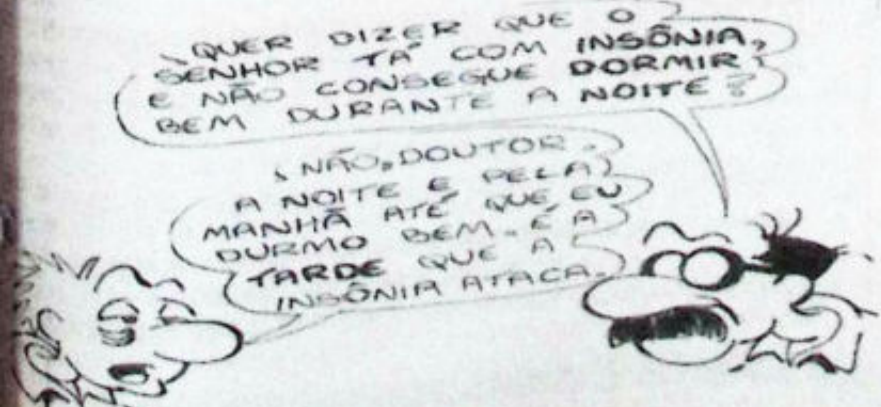 QUER DIZER QUE O
SENHOR TÁ COM INSÔNIA,
E NÃO CONSEGUE DORMIR
BEM DURANTE A NOITE?
NÃO, DOUTOR.
A NOITE E PELA
MANHÃ ATÉ QUE EU
DURMO BEM. É A
TARDE QUE A
INSÔNIA ATACA.